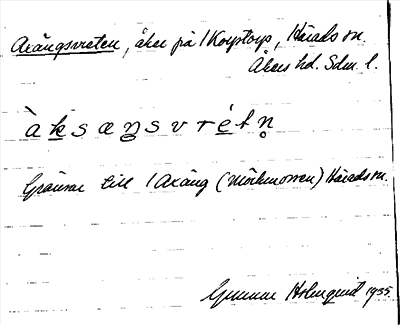 Axängsvreten, åker på 1 Korptorp, Härads sn.
Åkers hd. Sdm. l.
àksæŋsvrétn̥
Gränsar till 1 Axäng (Mörkmossen) Härads sn.
Gunnar Holmquist 1935